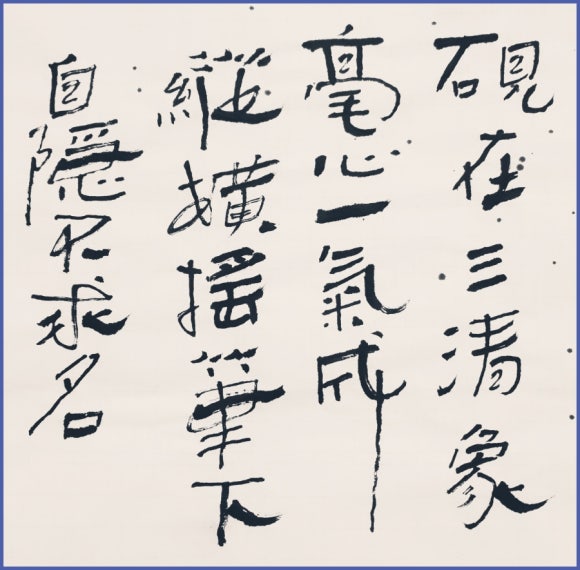 硯在三清象
毫心一氣成
縱橫摇筆下
自隱不求名